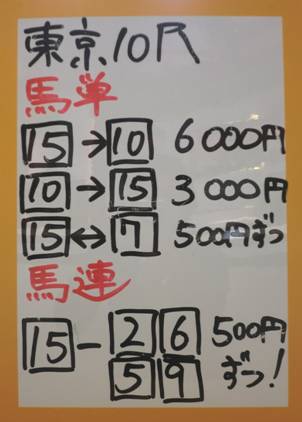 東京10R
馬単
15→10 6000円
10→15 3000円
15↔7 500円ずつ
馬連
15－2 6 500円
5 9 ずつ！